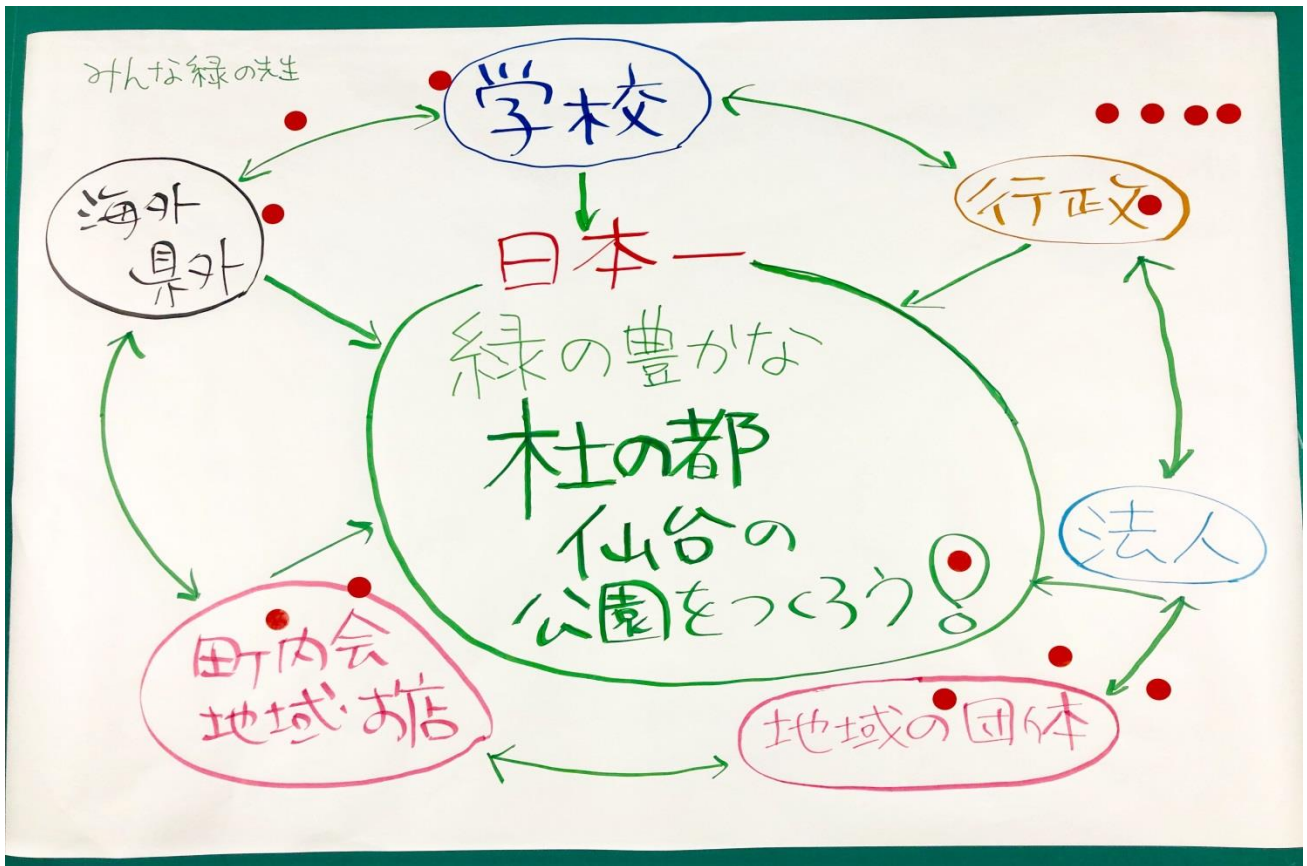 みんな緑の先生
学校
行政
海外
県外
日本一
緑の豊かな
杜の都
仙台の
公園をつくろう!
法人
町内会
地域・お店
地域の団体